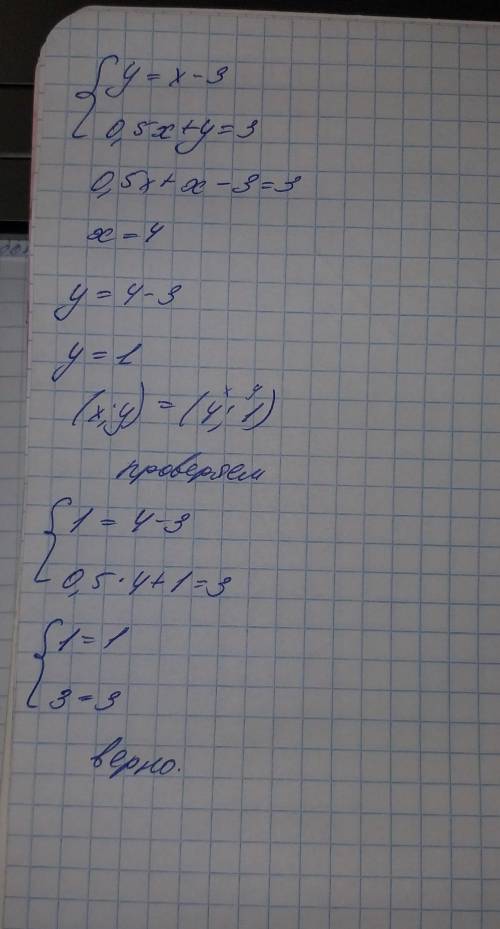 { y = x - 3
0,5x + y = 3
0,5x + x - 3 = 3
x = 4
y = 4 - 3
y = 1
x y
(x; y) = (4; 1)
проверяем
{ 1 = 4 - 3
0,5 · 4 + 1 = 3
{ 1 = 1
3 = 3
верно.